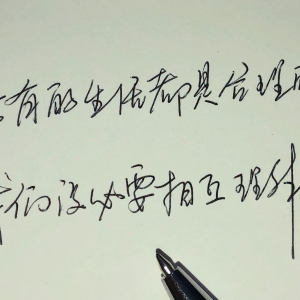 有的生活都具合理
我们没必要相互理解